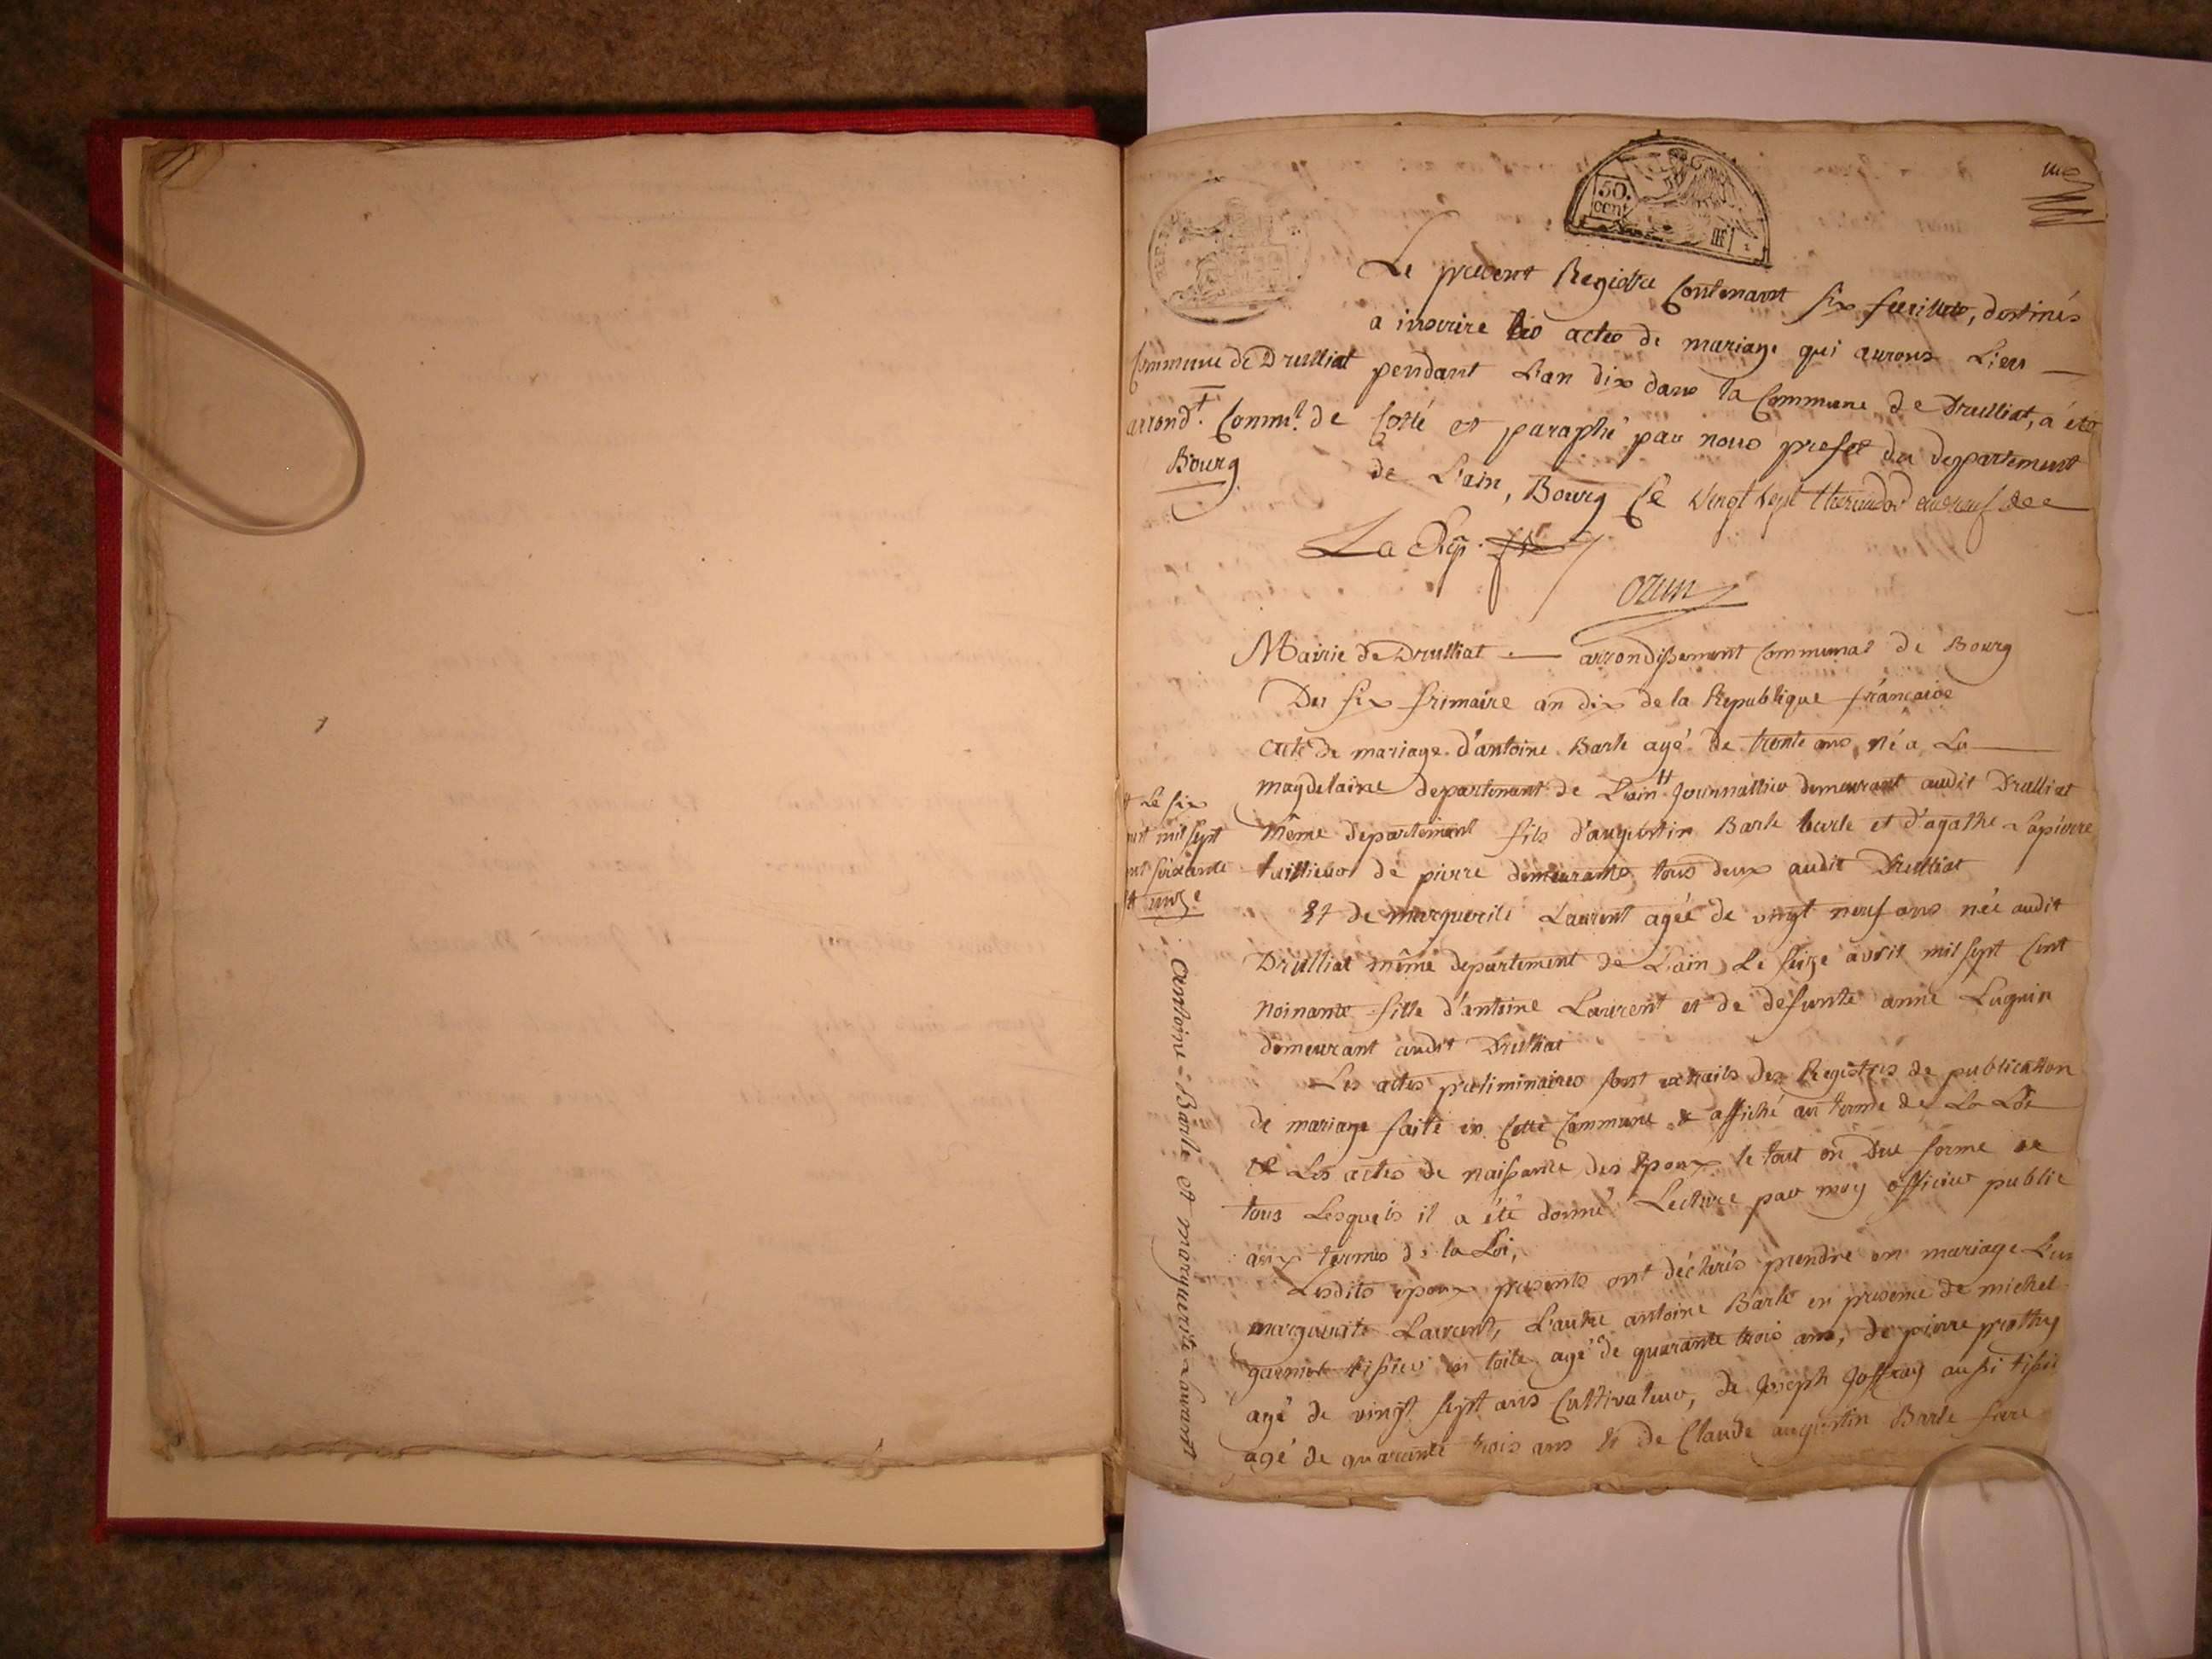 une
50.
cent.
REP. FRA
Le present Registre Contenant six feuillets, destinés
a inscrire les actes de mariage qui aurons Lieu
Commune de Drulliat
pendant L'an dix dans la Commune de Drulliat, a été
arrond.t Commu.l de
Bourg
Cotté et paraphé par nous prefet du departement
de L'ain, Bourg Ce vingt sept thermidor an neuf de
La Rép. fse
ozun
Mairie de Drulliat — arrondissement Communal de Bourg
Du six frimaire an dix de la Republique francaise
acte de mariage d'antoine Barle agé de trente ans, né a La
magdelaine departement de L'ain # Journallier demeurant audit Drulliat
# Le six
mil sept
soixante
et onze
même departement fils d'augustin Barle barle et d'agathe Lapierre
taillieur de pierre demeurants tous deux audit Drulliat
Et de marguerite Laurent agée de vingt neuf ans née audit
Drulliat même departement de L'ain, Le seize avril mil sept Cent
noinante fille d'antoine Laurent et de defunte anne Luguin
demeurant audit Drulliat
Les actes preliminaires sont extraits des Registres de publication
de mariage faite en Cette Commune & affiché au terme de La Loi
et Les actes de naissance des Epoux le tout en Due forme de
tous Lesquels il a été donné Lecture par moy officier public
aux termes de la Loi,
Lesdits epoux presents ont déclarés prendre en mariage L'un
marguerite Laurent, L'autre antoine Barle en presence de michel
garnier tissier en toile agé de quarante trois ans, de pierre prothy
agé de vingt sept ans Cultivateur, de Joseph Joffray aussi tissie
agé de quarante trois ans & de Claude augustin Barle frere
antoine Barle et marguerite Laurent